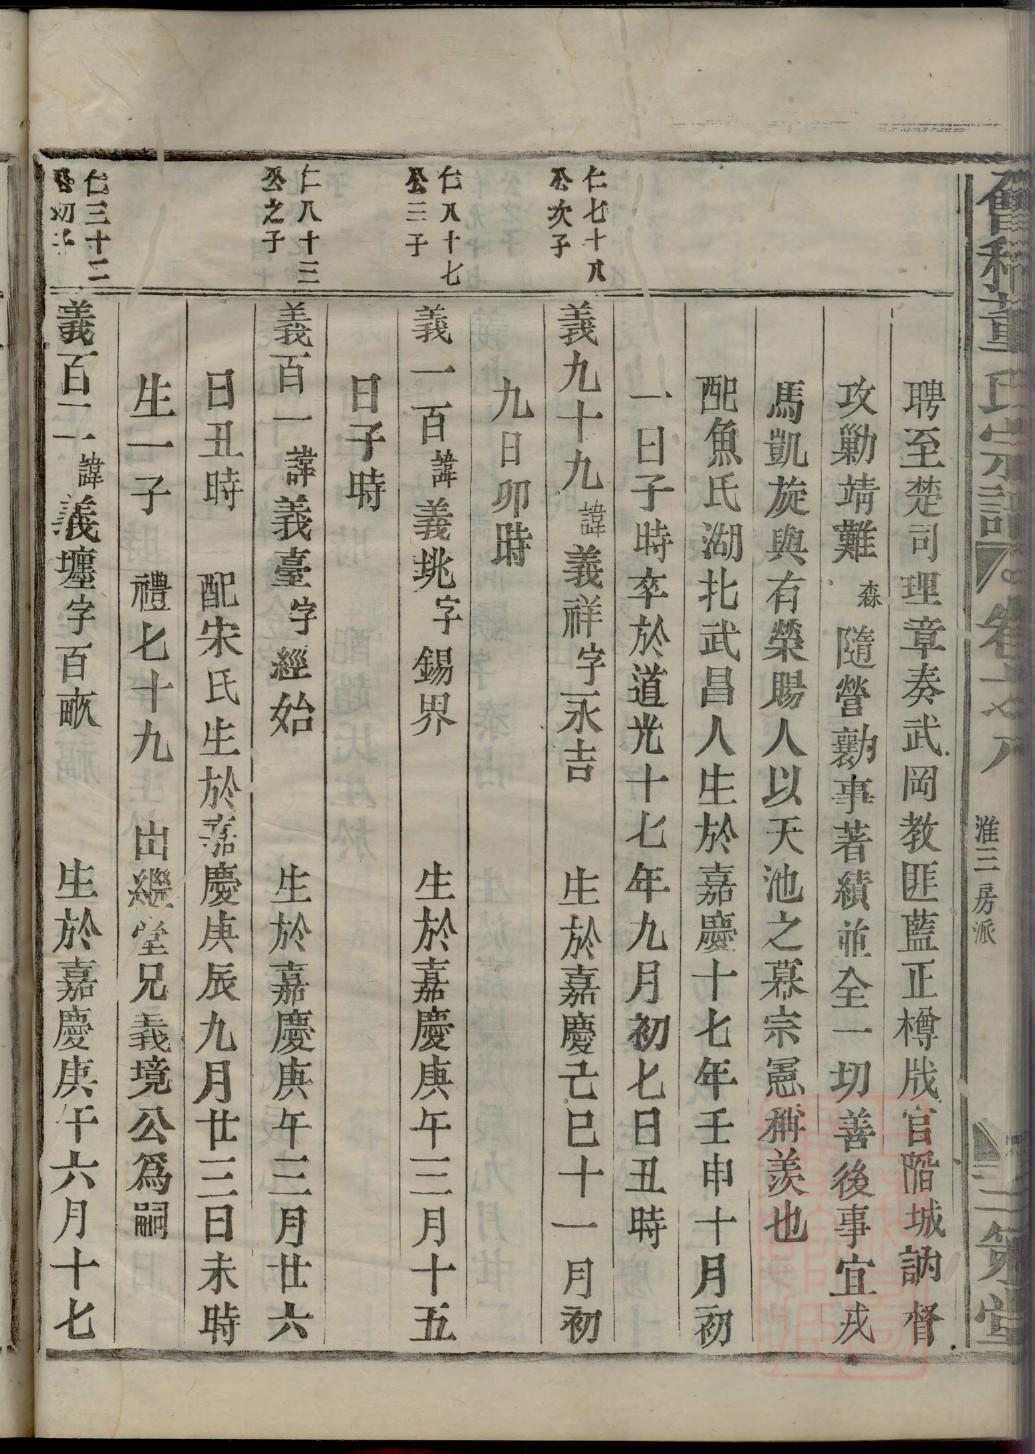 會稽董氏宗譜 卷 淮三房派 三策堂
聘至楚司理章奏武岡教匪藍正樽戕官陷城訥督
攻勦靖難森隨營勷事著績並全一切善後事宜戎
馬凱旋與有榮賜人以天池之幕宗憲稱羨也
配魚氏湖北武昌人生於嘉慶十七年壬申十月初
一日子時卒於道光十七年九月初七日丑時
仁七十八
公次子
義九十九諱義祥字永吉 生於嘉慶己巳十一月初
九日卯時
仁八十七
公三子
義一百諱義垗字錫界 生於嘉慶庚午三月十五
日子時
仁八十三
公之子
義百一諱義臺字經始 生於嘉慶庚午三月廿六
日丑時 配宋氏生於嘉慶庚辰九月廿三日未時
生一子 禮七十九 出繼堂兄義境公爲嗣
仁三十二
公初子
義百二諱義壥字百畝 生於嘉慶庚午六月十七